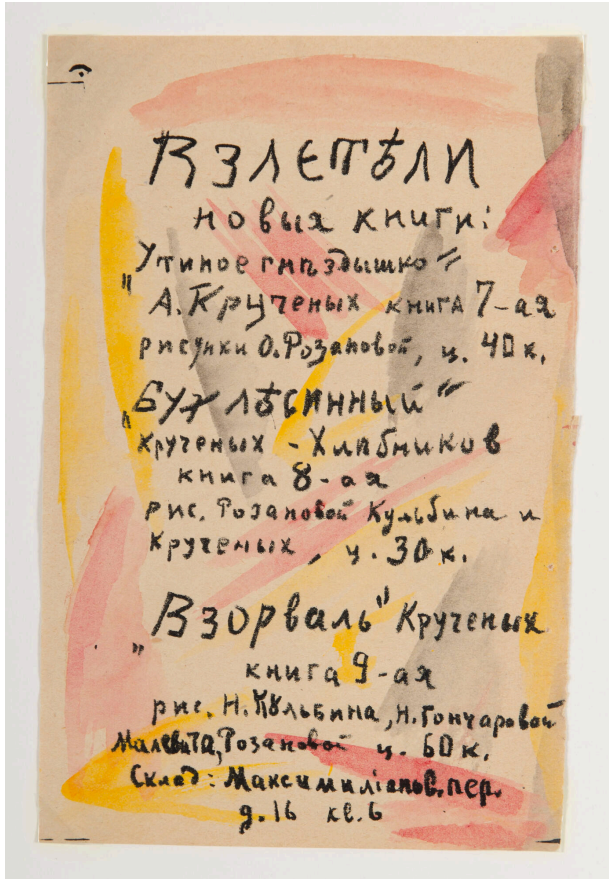 ВЗЛЕТѢЛИ
новыя книги:
Утиное гнѣздышко"
"А. Крученых книга 7-ая
рисунки О. Розановой, ц. 40 к.
"БУХ ЛѢСИННЫЙ"
Крученых - Хлѣбников
книга 8-ая
рис. Розановой Кульбина и
Крученых, ц. 30 к.
„Взорваль" Крученых
книга 9-ая
рис. Н. Кульбина, Н. Гончаровой
Малевича, Розановой ц. 60 к.
Склад: Максимиліанов. пер.
д. 16 кв. 6